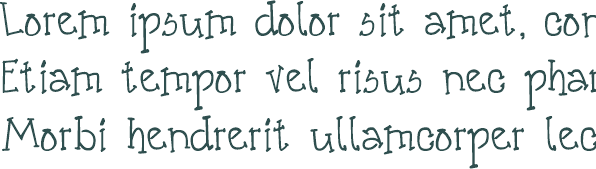 Lorem ipsum dolor sit amet, cor
Etiam tempor vel risus nec phar
Morbi hendrerit ullamcorper lec